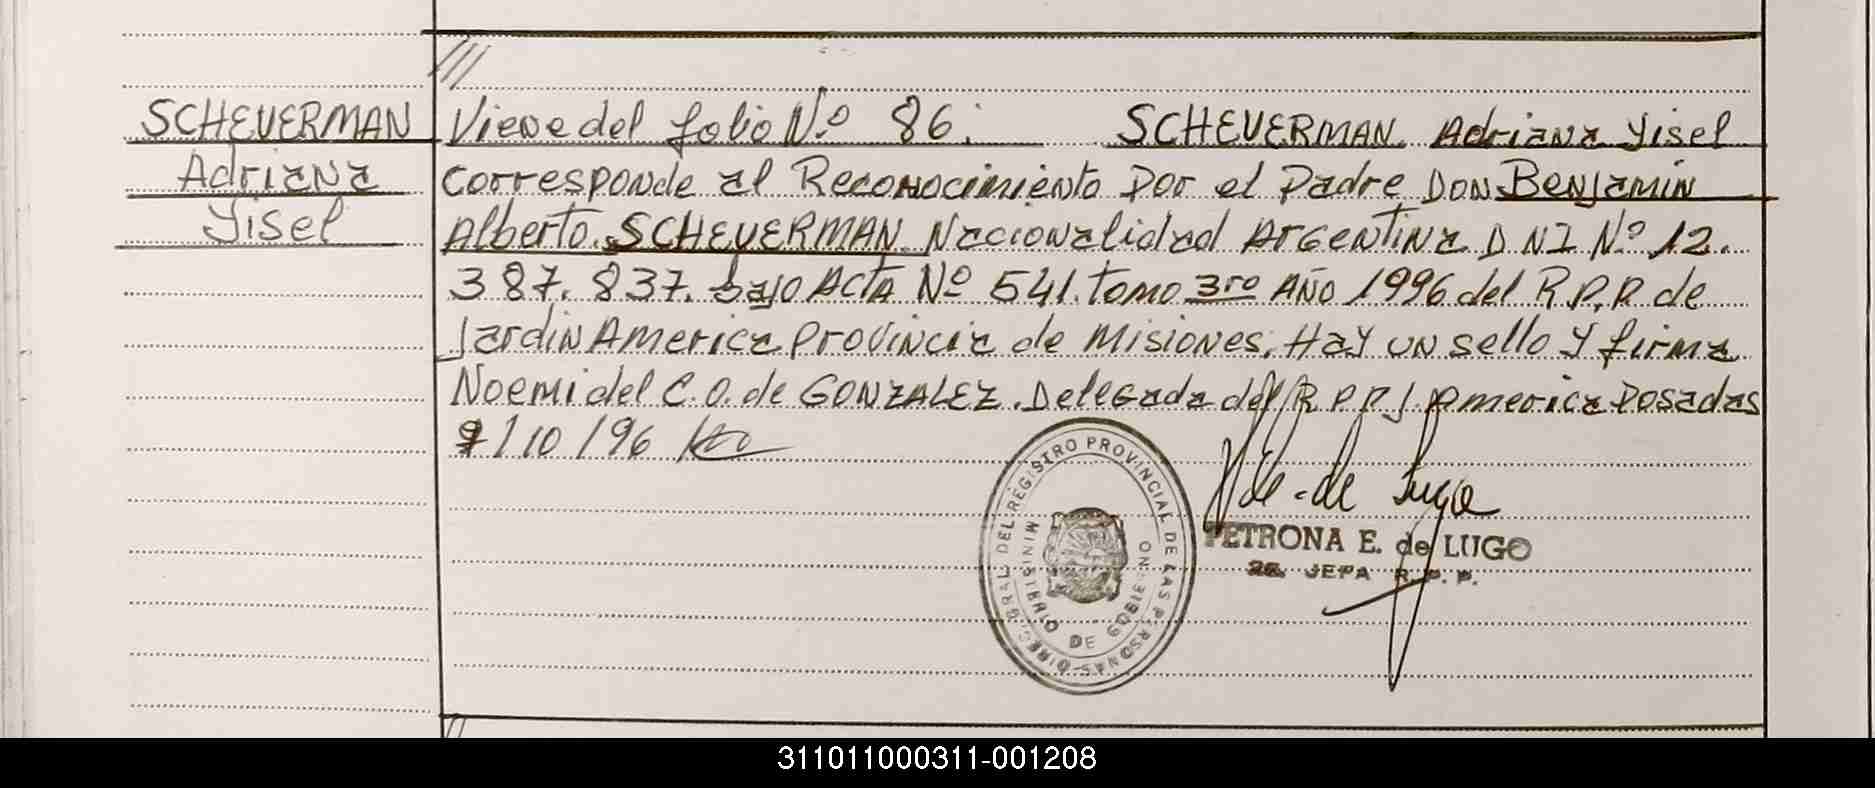 ///
SCHEUERMAN
Adriana
Yisel
Viene del folio Nº 86. SCHEUERMAN Adriana Yisel
corresponde al Reconocimiento Por el Padre DON Benjamin
Alberto SCHEUERMAN Nacionalidad ArGentina D N I Nº 12.
387.837. bajo Acta Nº 541. tomo 3ro Año 1996 del R.P.P. de
Jardin America Provincia de Misiones. Hay un sello y firma
Noemi del C. O. de GONZALEZ. Delegada del R P P J. America Posadas
9/10/96
DIREC. GRAL. DEL REGISTRO PROVINCIAL DE LAS PERSONAS
MINISTERIO DE GOBIERNO
de Lugo
PETRONA E. de LUGO
JEFA R. P. P.
311011000311-001208